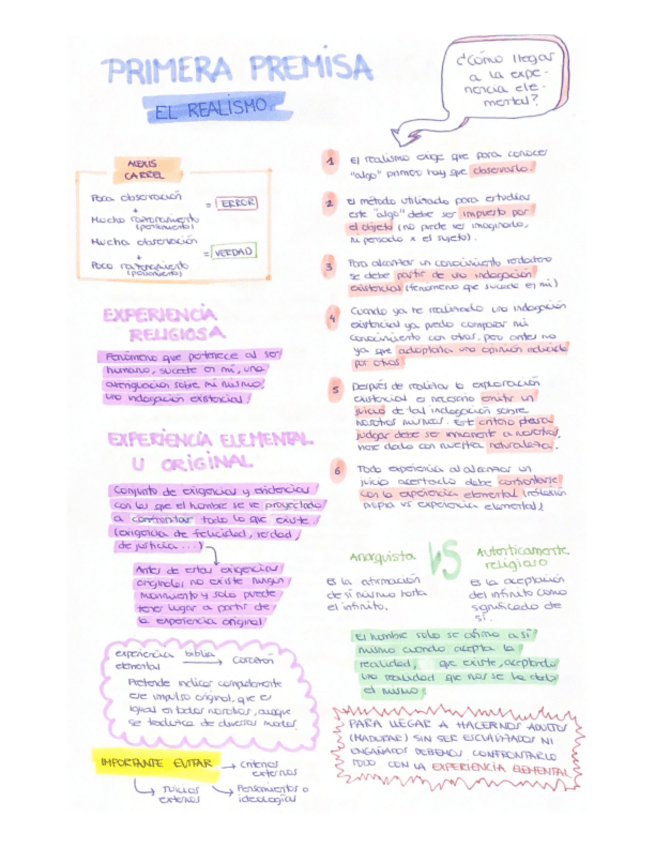 PRIMERA PREMISA
EL REALISMO
¿Cómo llegar
a la expe-
riencia ele-
mental?
ALEXIS
CARREL
Poca observación
+
Mucho razonamiento
(pensamiento)
= ERROR
Mucha observación
+
Poco razonamiento
(pensamiento)
= VERDAD
EXPERIENCIA
RELIGIOSA
Fenómeno que pertenece al ser
humano, sucede en mi, una
averiguación sobre mi mismo,
una indagación existencial.
EXPERIENCIA ELEMENTAL
U ORIGINAL
Conjunto de exigencias y evidencias
con las que el hombre se ve proyectado
a confrontar todo lo que existe.
(exigencia de felicidad, verdad,
de justicia ...)
Antes de estas exigencias
originales no existe ningún
movimiento y solo puede
tener lugar a partir de
la experiencia original
experiencia elemental biblia → corazón
Pretende indicar completamente
ese impulso original, que es
igual en todos nosotros, aunque
se traduzca de diversos modos.
IMPORTANTE EVITAR → criterios
externos
↳ Juicios
externos
→ Pensamientos o
ideologías
1 El realismo exige que para conocer
"algo" primero hay que observarlo.
2 el método utilizado para estudiar
este "algo" debe ser impuesto por
el objeto (no puede ser imaginado,
ni pensado x el sujeto).
3 Para alcanzar un conocimiento verdadero
se debe partir de una indagación
existencial (fenómeno que sucede en mi)
4 Cuando ya he realizado una indagación
existencial ya puedo comparar mi
conocimiento con otros, pero antes no
ya que adoptaría una opinión inducida
por otros
5 Después de realizar la exploración
existencial es necesario emitir un
juicio de tal indagación sobre
nosotros mismos. Este criterio para
juzgar debe ser inmanente a nosotros,
nace dado con nuestra naturaleza.
6 Toda experiencia al alcanzar un
juicio acertado debe confrontarse
con la experiencia elemental (reflexión
propia vs experiencia elemental)
Anarquista VS Autenticamente
religioso
Es la afirmación
de si mismo hasta
el infinito.
Es la aceptación
del infinito como
significado de
si.
El hombre solo se afirma a si
mismo cuando acepta la
realidad, que existe, aceptando
una realidad que no se ha dado
el mismo.
PARA LLEGAR A HACERNOS ADULTOS
(MADURAR) SIN SER ESCLAVIZADOS NI
ENGAÑADOS DEBEMOS CONFRONTARLO
TODO CON LA EXPERIENCIA ELEMENTAL